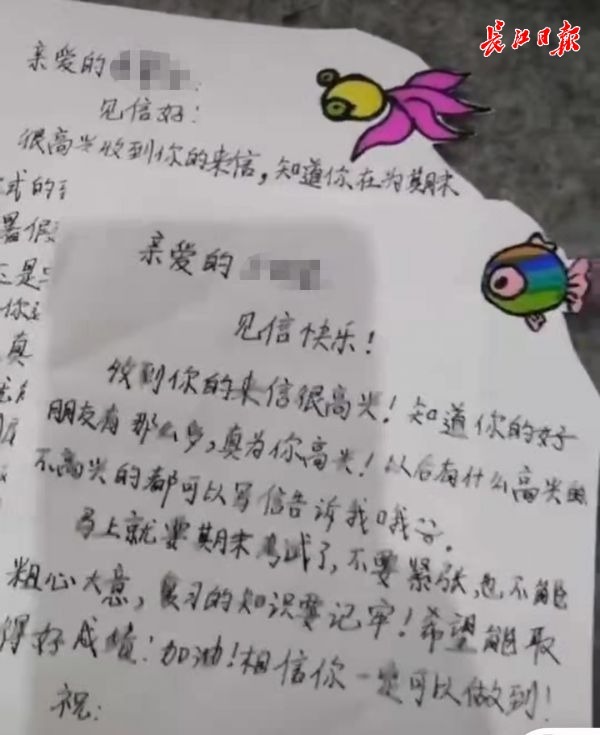 长江日报
亲爱的
见信好：
很高兴收到你的来信，知道你在为期末
式的
暑假
你
真
亲爱的
见信快乐！
收到你的来信很高兴！知道你的好
朋友有那么多，真为你高兴！以后有什么高兴的
不高兴的都可以写信告诉我哦
马上就要期末考试了，不要紧张，也不能
粗心大意，复习的知识要记牢！希望能取
得好成绩！加油！相信你一定可以做到！
祝：